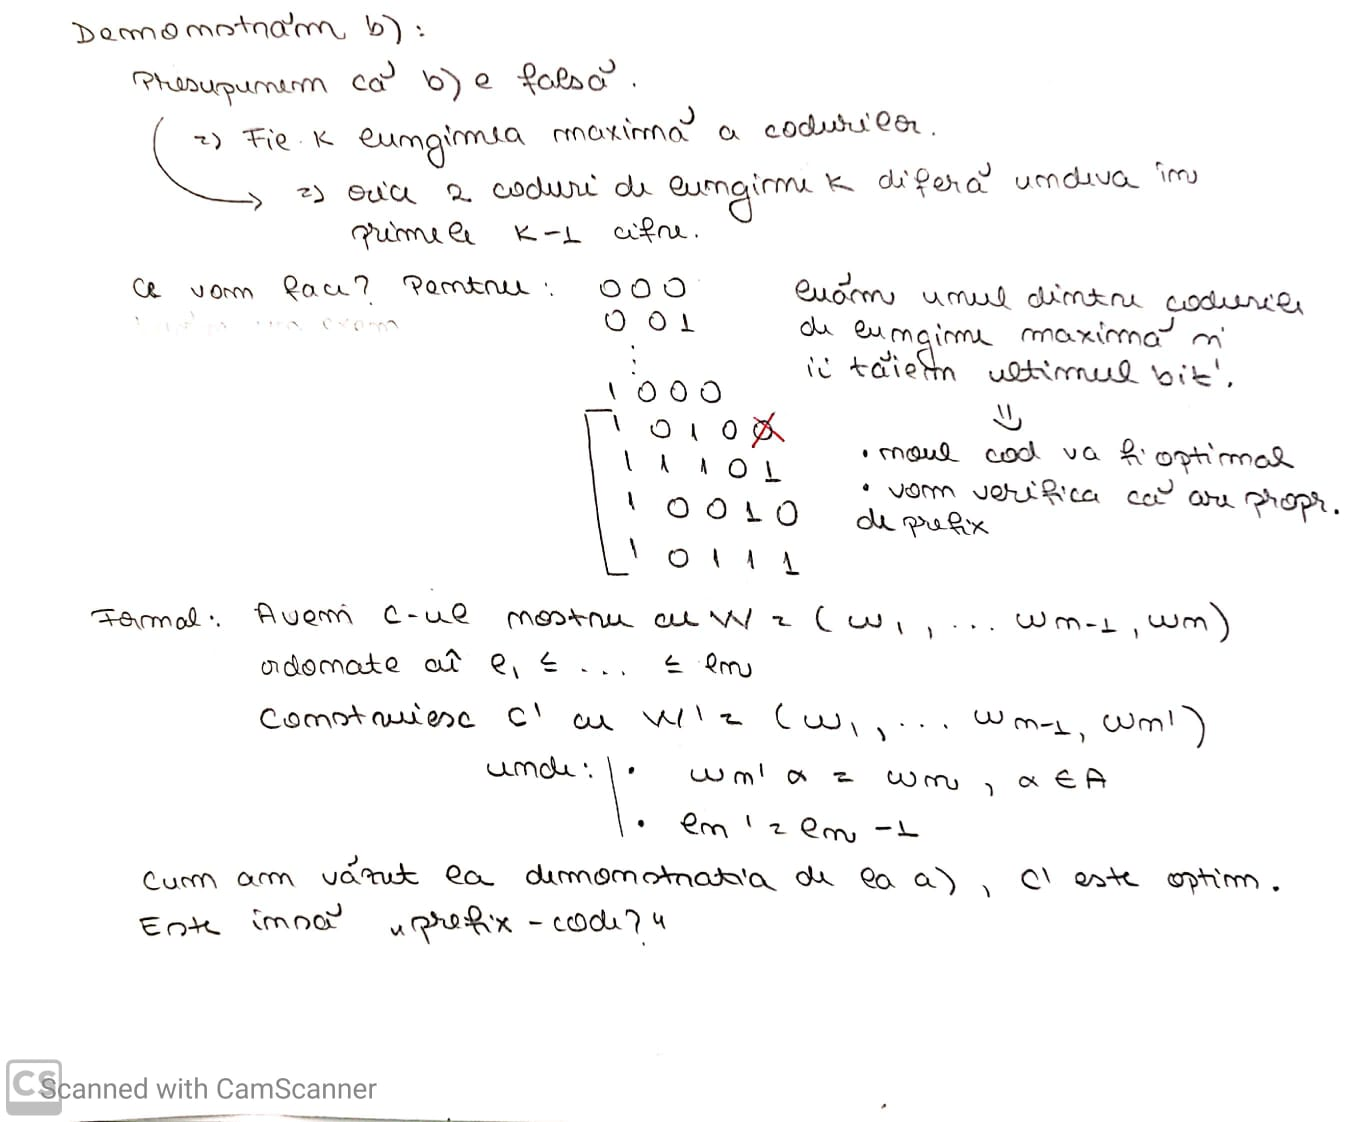 Demonstrăm b) :
Presupunem că b) e falsă.
=) Fie K lungimea maximă a codurilor.
=) orice 2 coduri de lungime K diferă undeva în
primele K-1 cifre.
Ce vom face? Pentru :
000
001
⋮
1000
10100
11101
10010
10111
luăm unul dintre codurile
de lungime maximă și
îi tăiem ultimul bit.
⇓
• noul cod va fi optimal
• vom verifica că are propr.
de prefix
Formal : Avem C-ul nostru cu W = (w1, ... wn-1, wn)
ordonate aî l1 ≤ ... ≤ ln
Construiesc C' cu W' = (w1, ... wn-1, wn')
unde : • wn' α = wn, α ∈ A
• ln' = ln -1
Cum am văzut la demonstratia de la a), C' este optim.
Este însă "prefix-code?"
CS Scanned with CamScanner